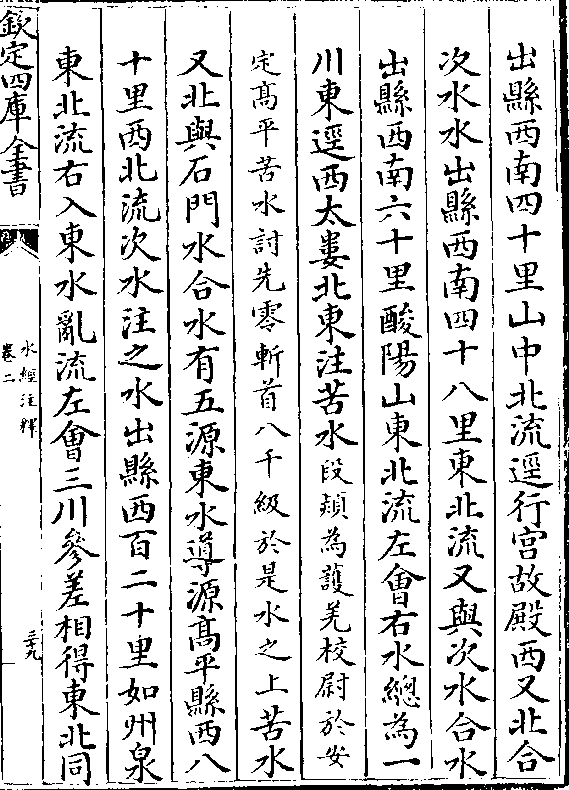 出縣西南四十里山中北流逕行宫故殿西又北合
次水水出縣西南四十八里東北流又與次水合水
出縣西南六十里酸陽山東北流左會右水總為一
川東逕西太婁北東注苦水段熲為護羌校尉於安
定高平苦水討先零斬首八千級於是水之上苦水
又北與石門水合水有五源東水導源高平縣西八
十里西北流次水注之水出縣西百二十里如州泉
東北流右入東水亂流左會三川參差相得東北同
欽定四庫全書
水經注釋
卷二
三九